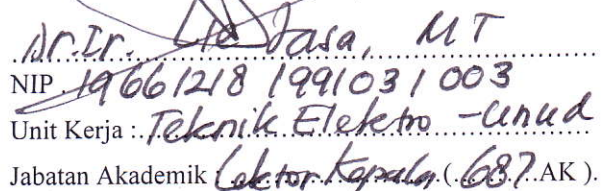 Dr. Ir. Lie Jasa, MT
NIP. 19661218 1991031003
Unit Kerja : Teknik Elektro - Unud
Jabatan Akademik : Lektor Kepala (687 AK ).